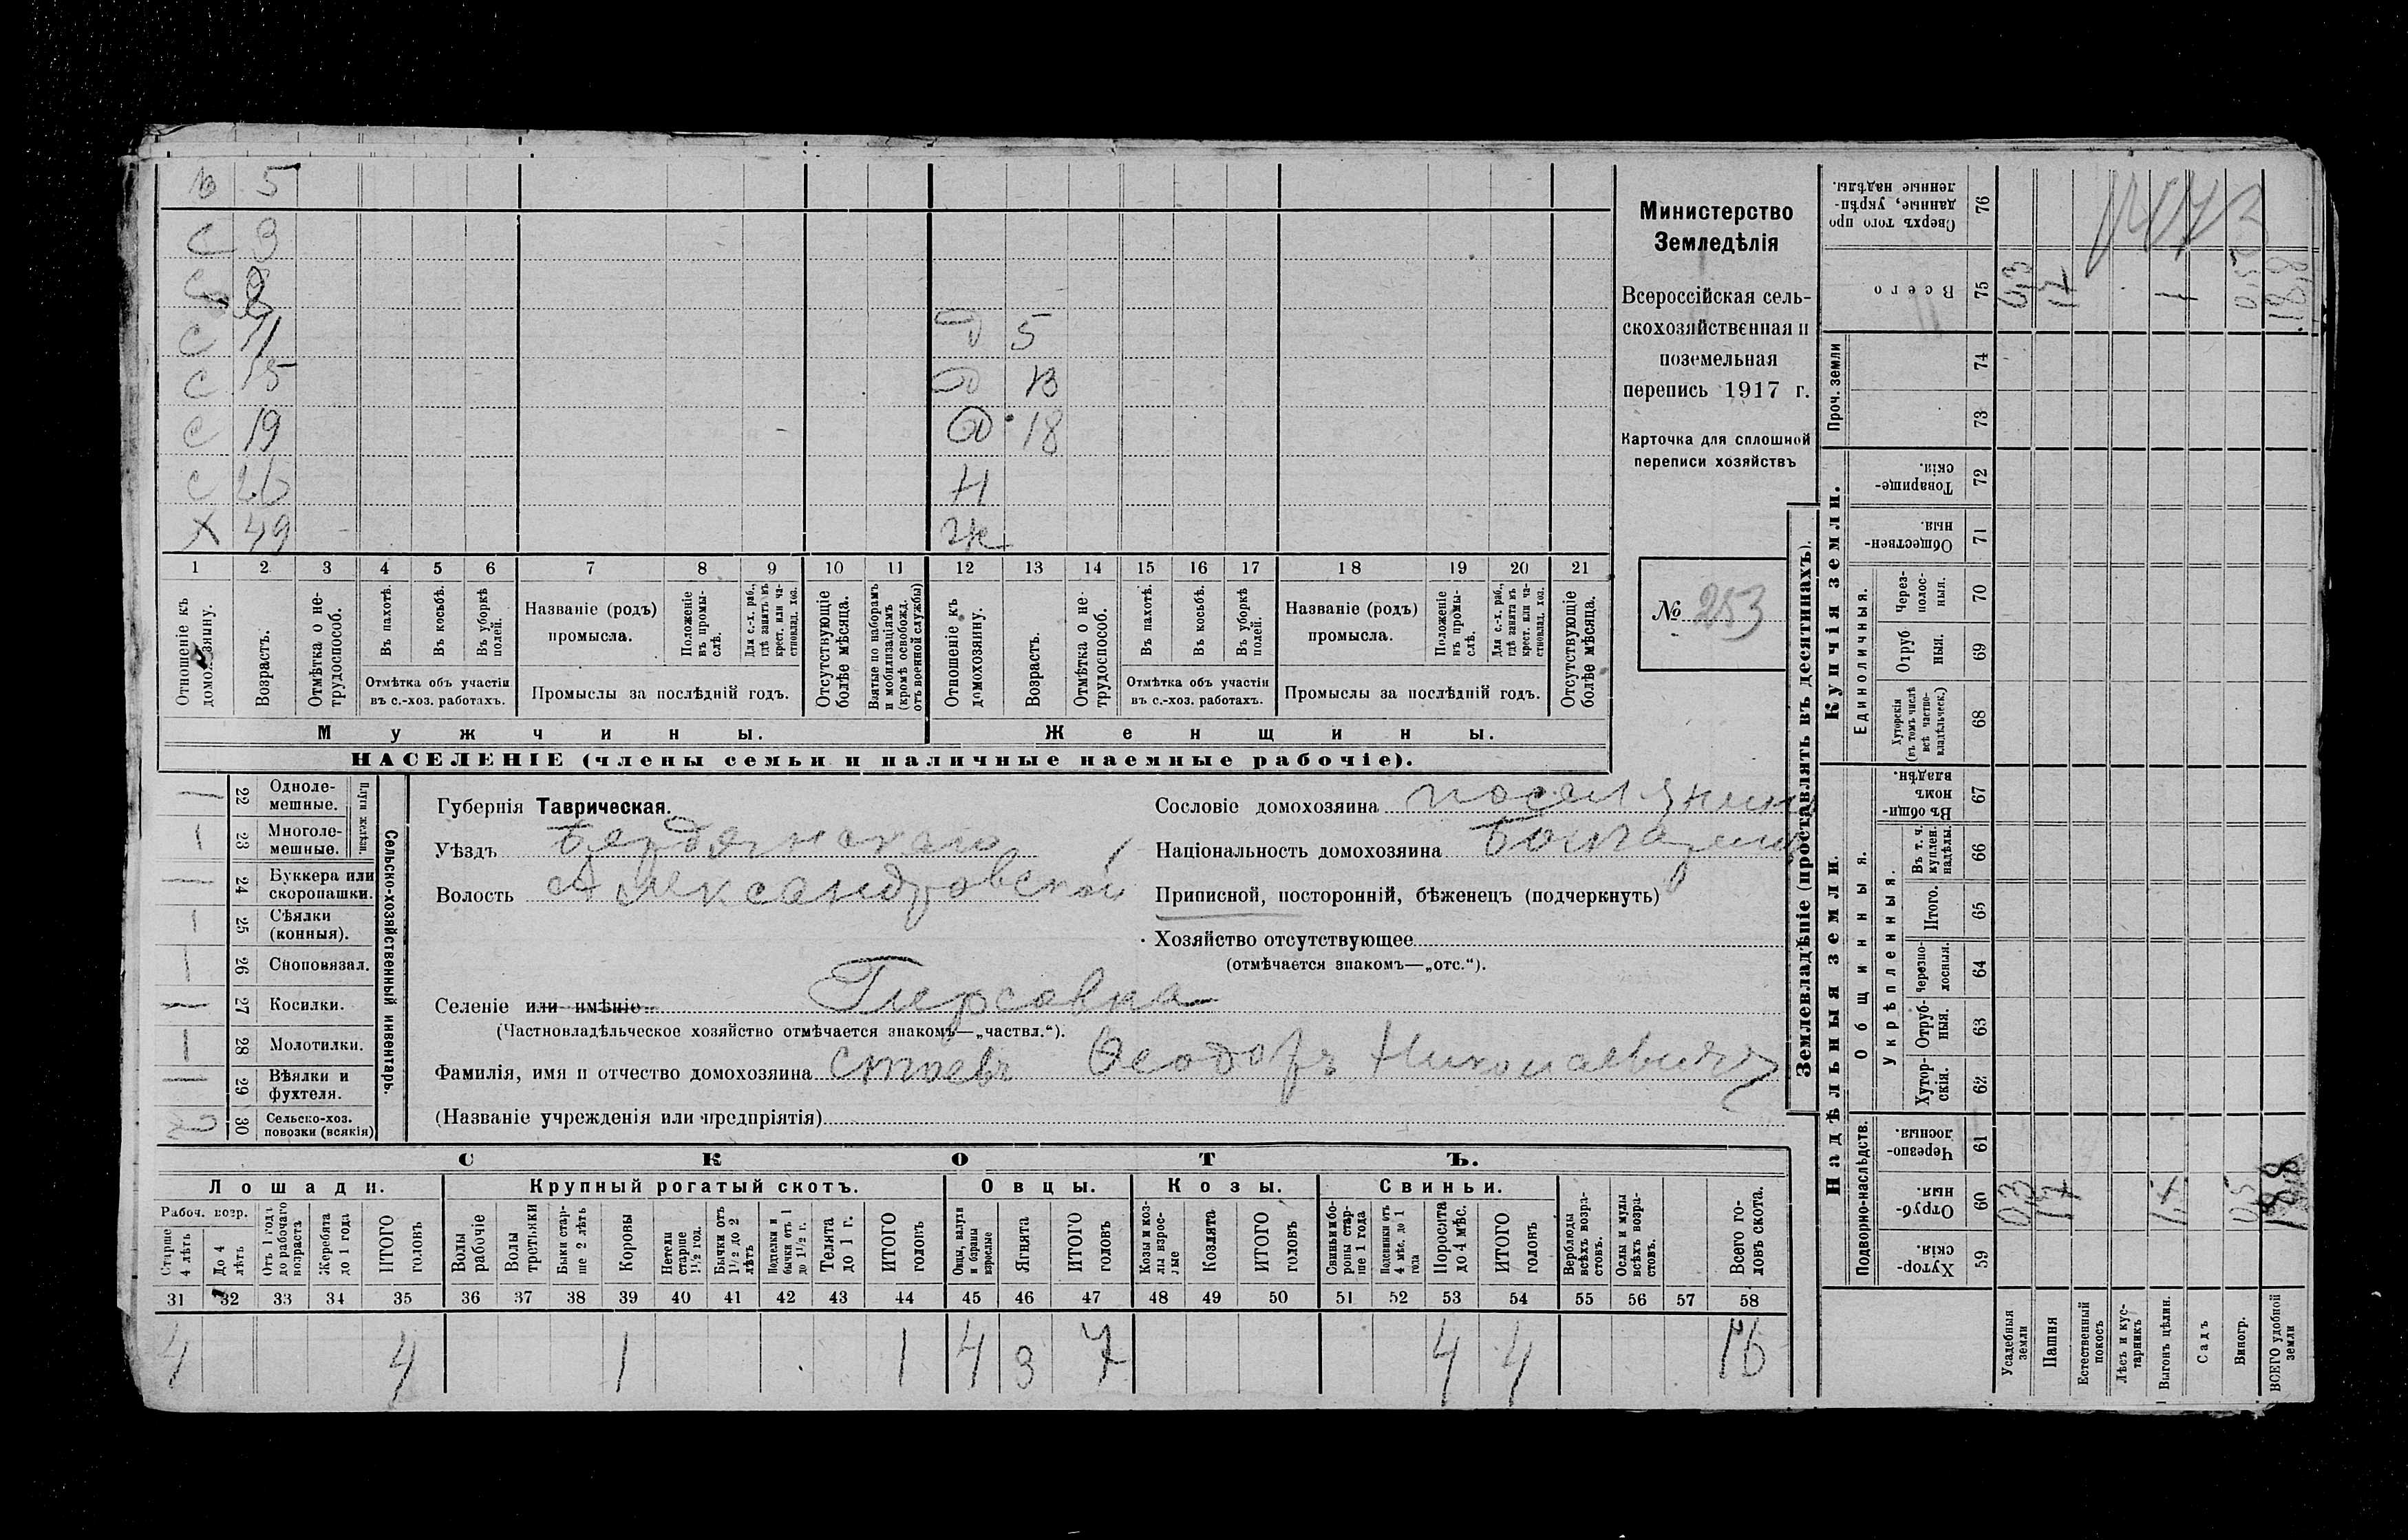 5
С
С
С 11 Д 5
С 15 Д 13
С 19 Д 18
С Н
Х 49 Ж
1 2 3 4 5 6 7 8 9 10 11 12 13 14 15 16 17 18 19 20 21
Отношеніе къ домохозяину.
Возрастъ.
Отмѣтка о не-
трудоспособ.
Въ пахотѣ.
Въ косьбѣ.
Въ уборкѣ
полей.
Отмѣтка объ участіи
въ с.-хоз. работахъ.
Названіе (родъ)
промысла.
Положеніе
въ промы-
слѣ.
Для с.-х. раб.,
гдѣ занятъ въ
крест. или ча-
стновлад. хоз.
Промыслы за послѣдній годъ.
Отсутствующіе
болѣе мѣсяца.
Взятые по наборамъ
и мобилизаціямъ
(кромѣ освобожд.
отъ военной службы)
Отношеніе къ
домохозяину.
Возрастъ.
Отмѣтка о не-
трудоспособ.
Въ пахотѣ.
Въ косьбѣ.
Въ уборкѣ
полей.
Отмѣтка объ участіи
въ с.-хоз. работахъ.
Названіе (родъ)
промысла.
Положеніе
въ промы-
слѣ.
Для с.-х. раб.,
гдѣ занята въ
крест. или ча-
стновлад. хоз.
Промыслы за послѣдній годъ.
Отсутствующіе
болѣе мѣсяца.
Мужчины. Женщины.
НАСЕЛЕНІЕ (члены семьи и наличные наемные рабочіе).
Министерство
Земледѣлія
Всероссійская сель-
скохозяйственная и
поземельная
перепись 1917 г.
Карточка для сплошной
переписи хозяйствъ
№ 253
22 Одноле-
мешные.
23 Многоле-
мешные.
Плуги желѣзн.
24 Буккера или
скоропашки.
25 Сѣялки
(конныя).
26 Сноповязал.
27 Косилки.
28 Молотилки.
29 Вѣялки и
фухтеля.
30 Сельско-хоз.
повозки (всякія)
Сельско-хозяйственный инвентарь.
Губернія Таврическая.
Уѣздъ Бердянскаго
Волость Александровской
Селеніе или имѣніе Гирсовка
(Частновладѣльческое хозяйство отмѣчается знакомъ—„частвл.“).
Фамилія, имя и отчество домохозяина Стоевъ Ѳеодоръ Николаевичъ
(Названіе учрежденія или предпріятія)
Сословіе домохозяина поселянинъ
Національность домохозяина
Приписной, посторонній, бѣженецъ (подчеркнуть)
Хозяйство отсутствующее
(отмѣчается знакомъ—„отс.“).
СКОТЪ.
Лошади. Крупный рогатый скотъ. Овцы. Козы. Свиньи.
Рабоч. возр.
Старше
4 лѣтъ
До 4
лѣтъ
Отъ 1 года
до рабочаго
возраста
Жеребята
до 1 года
ИТОГО
головъ
Волы
рабочіе
Волы
третьяки
Быки стар-
ше 2 лѣтъ
Коровы
Нетели
старше
1½ год.
Бычки отъ
1½ до 2
лѣтъ
Подтелки и
бычки отъ 1
до 1½ г.
Телята
до 1 г.
ИТОГО
головъ
Овцы, валухи
и бараны
взрослые
Ягнята
ИТОГО
головъ
Козы и коз-
лы взрос-
лые
Козлята
ИТОГО
головъ
Свиньи и бо-
ровы стар-
ше 1 года
Подсвинки отъ
4 мѣс. до 1
года
Поросята
до 4 мѣс.
ИТОГО
головъ
Верблюды
всѣхъ возра-
стовъ.
Ослы и мулы
всѣхъ возра-
стовъ.
Всего го-
ловъ скота.
31 32 33 34 35 36 37 38 39 40 41 42 43 44 45 46 47 48 49 50 51 52 53 54 55 56 57 58
4 4 1 1 4 3 7 4 4 16
Землевладѣніе (проставлять въ десятинахъ).
Надѣльныя земли. Купчія земли.
Проч. земли
Подворно-наслѣдств.
Общинныя.
Укрѣпленныя.
Единоличныя.
Сверхъ того про
данные, укрѣп-
ленные надѣлы.
76
Всего
75
74
73
Товарище-
скія.
72
Обществен-
ныя.
71
Через-
полос-
ныя.
70
Отруб
ныя.
69
Хуторскія
(въ томъ числѣ
всѣ частно-
владѣльческ.)
68
Въ общи-
номъ
владѣн.
67
Въ т. ч.
куплен.
надѣлы.
66
Итого.
65
Черезпо-
лосныя.
64
Отруб-
ныя.
63
Хутор-
скія.
62
Черезпо-
лосныя.
61
Отруб-
ныя.
60
Хутор-
скія.
59
Усадебныя
земли
Пашня
Естественный
покосъ
Лѣсъ и кус-
тарникъ
Выгонъ цѣлин.
Садъ
Виногр.
ВСЕГО удобной
земли
0,3 17 1 0,5 18,8
0,3 17 0,5 18,8